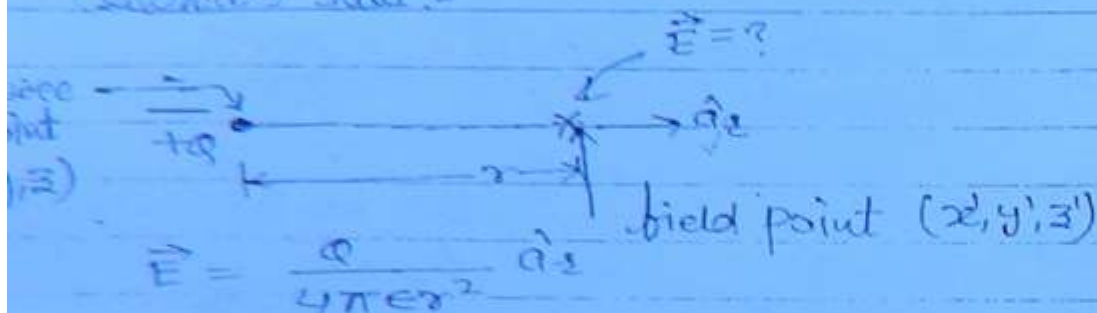 E⃗ = ?
+Q
â_r
r
field point (x', y', z')
E⃗ = Q / 4πεr² â_r